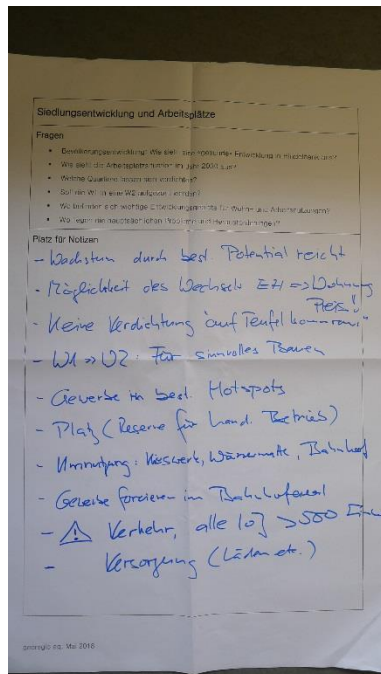 Siedlungsentwicklung und Arbeitsplätze
Fragen
• Bevölkerungsentwicklung: Wie sieht eine Entwicklung in
• Wie sieht die Arbeitsplatzsituation im Jahr 2030 aus?
• Welche Quartiere lassen sich verdichten?
• Soll ein W1 in eine W2 aufgezont werden?
• Wo befinden sich wichtige Entwicklungsgebiete für Wohn- und Arbeitsnutzung?
• Wo liegen die hauptsächlichen
Platz für Notizen
- Wachstum durch best. Potential reicht
- Möglichkeit des Wechsels EFH => Wohnung
Preis!
- Keine Verdichtung "auf Teufel komm raus"
- W1 => W2: Für sinnvolles Bauen
- Gewerbe in best. Hotspots
- Platz (Reserve für Betrieb)
- Umnutzung: Kieswerk, Wässermatte, Bahnhof
- Gewerbe forcieren im Bahnhofareal
- ⚠ Verkehr, alle > 500
- Versorgung (Läden etc.)
georegio ag, Mai 2018